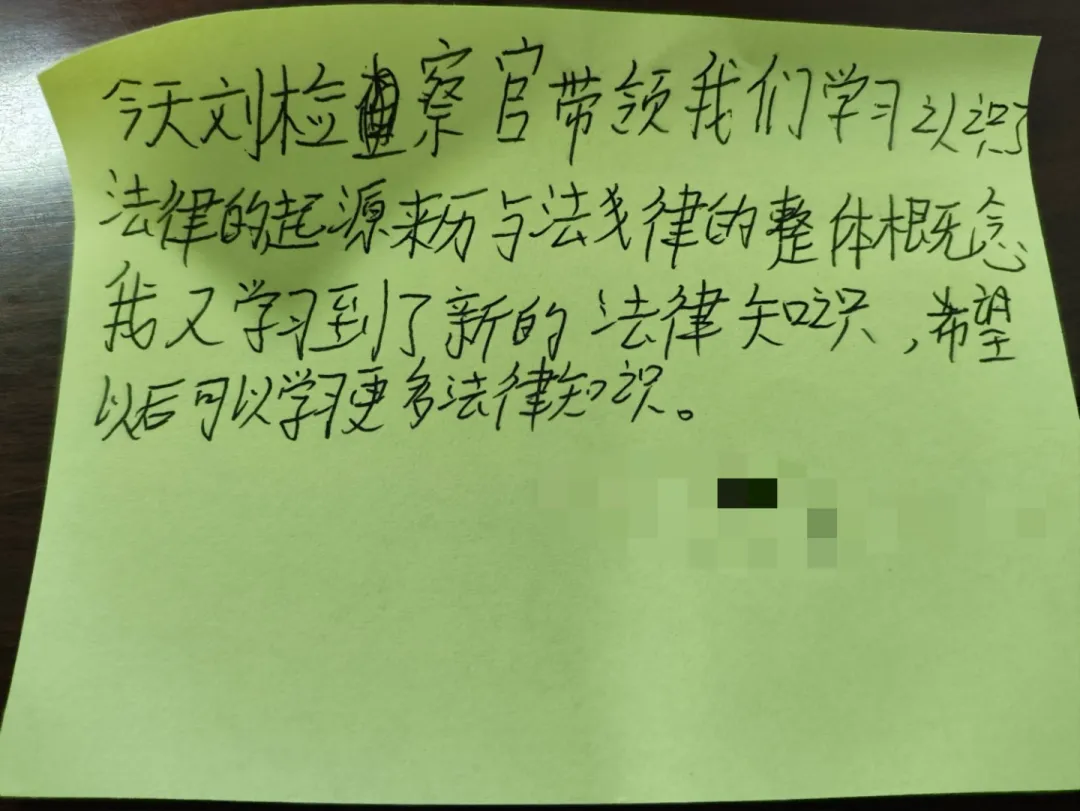 今天刘检察官带领我们学习认识了
法律的起源来历与法律的整体概念
我又学习到了新的法律知识,希望
以后可以学习更多法律知识。